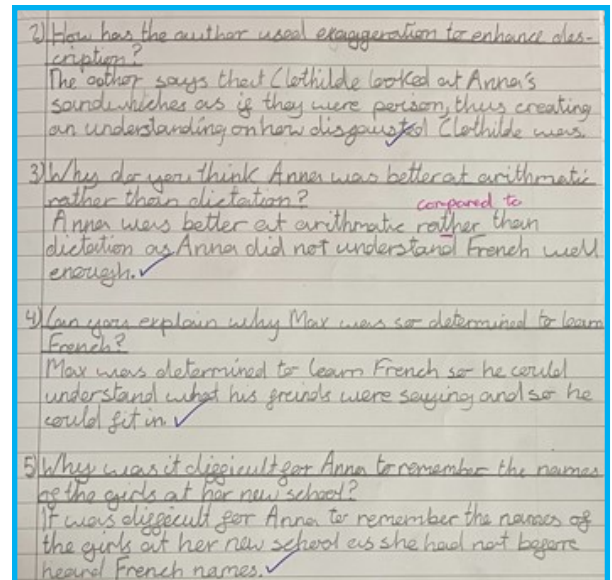 2) How has the author used exaggeration to enhance des-
cription?
The oothor says that Clothilde looked at Anna's
sandwhiches as if they were poison, thus creating
an understanding on how disgausted Clothilde was.
3) Why do you think Anna was better at arithmatic
rather than dictation?
compared to
Anna was better at arithmatic rather than
dictation as Anna did not understand French well
enough.
4) Can you explain why Max was so determined to learn
French?
Max was determined to learn French so he could
understand what his freinds were saying and so he
could fit in.
5) Why was it difficult for Anna to remember the names
of the girls at her new school?
It was difficult for Anna to remember the names of
the girls at her new school as she had not before
heard French names.